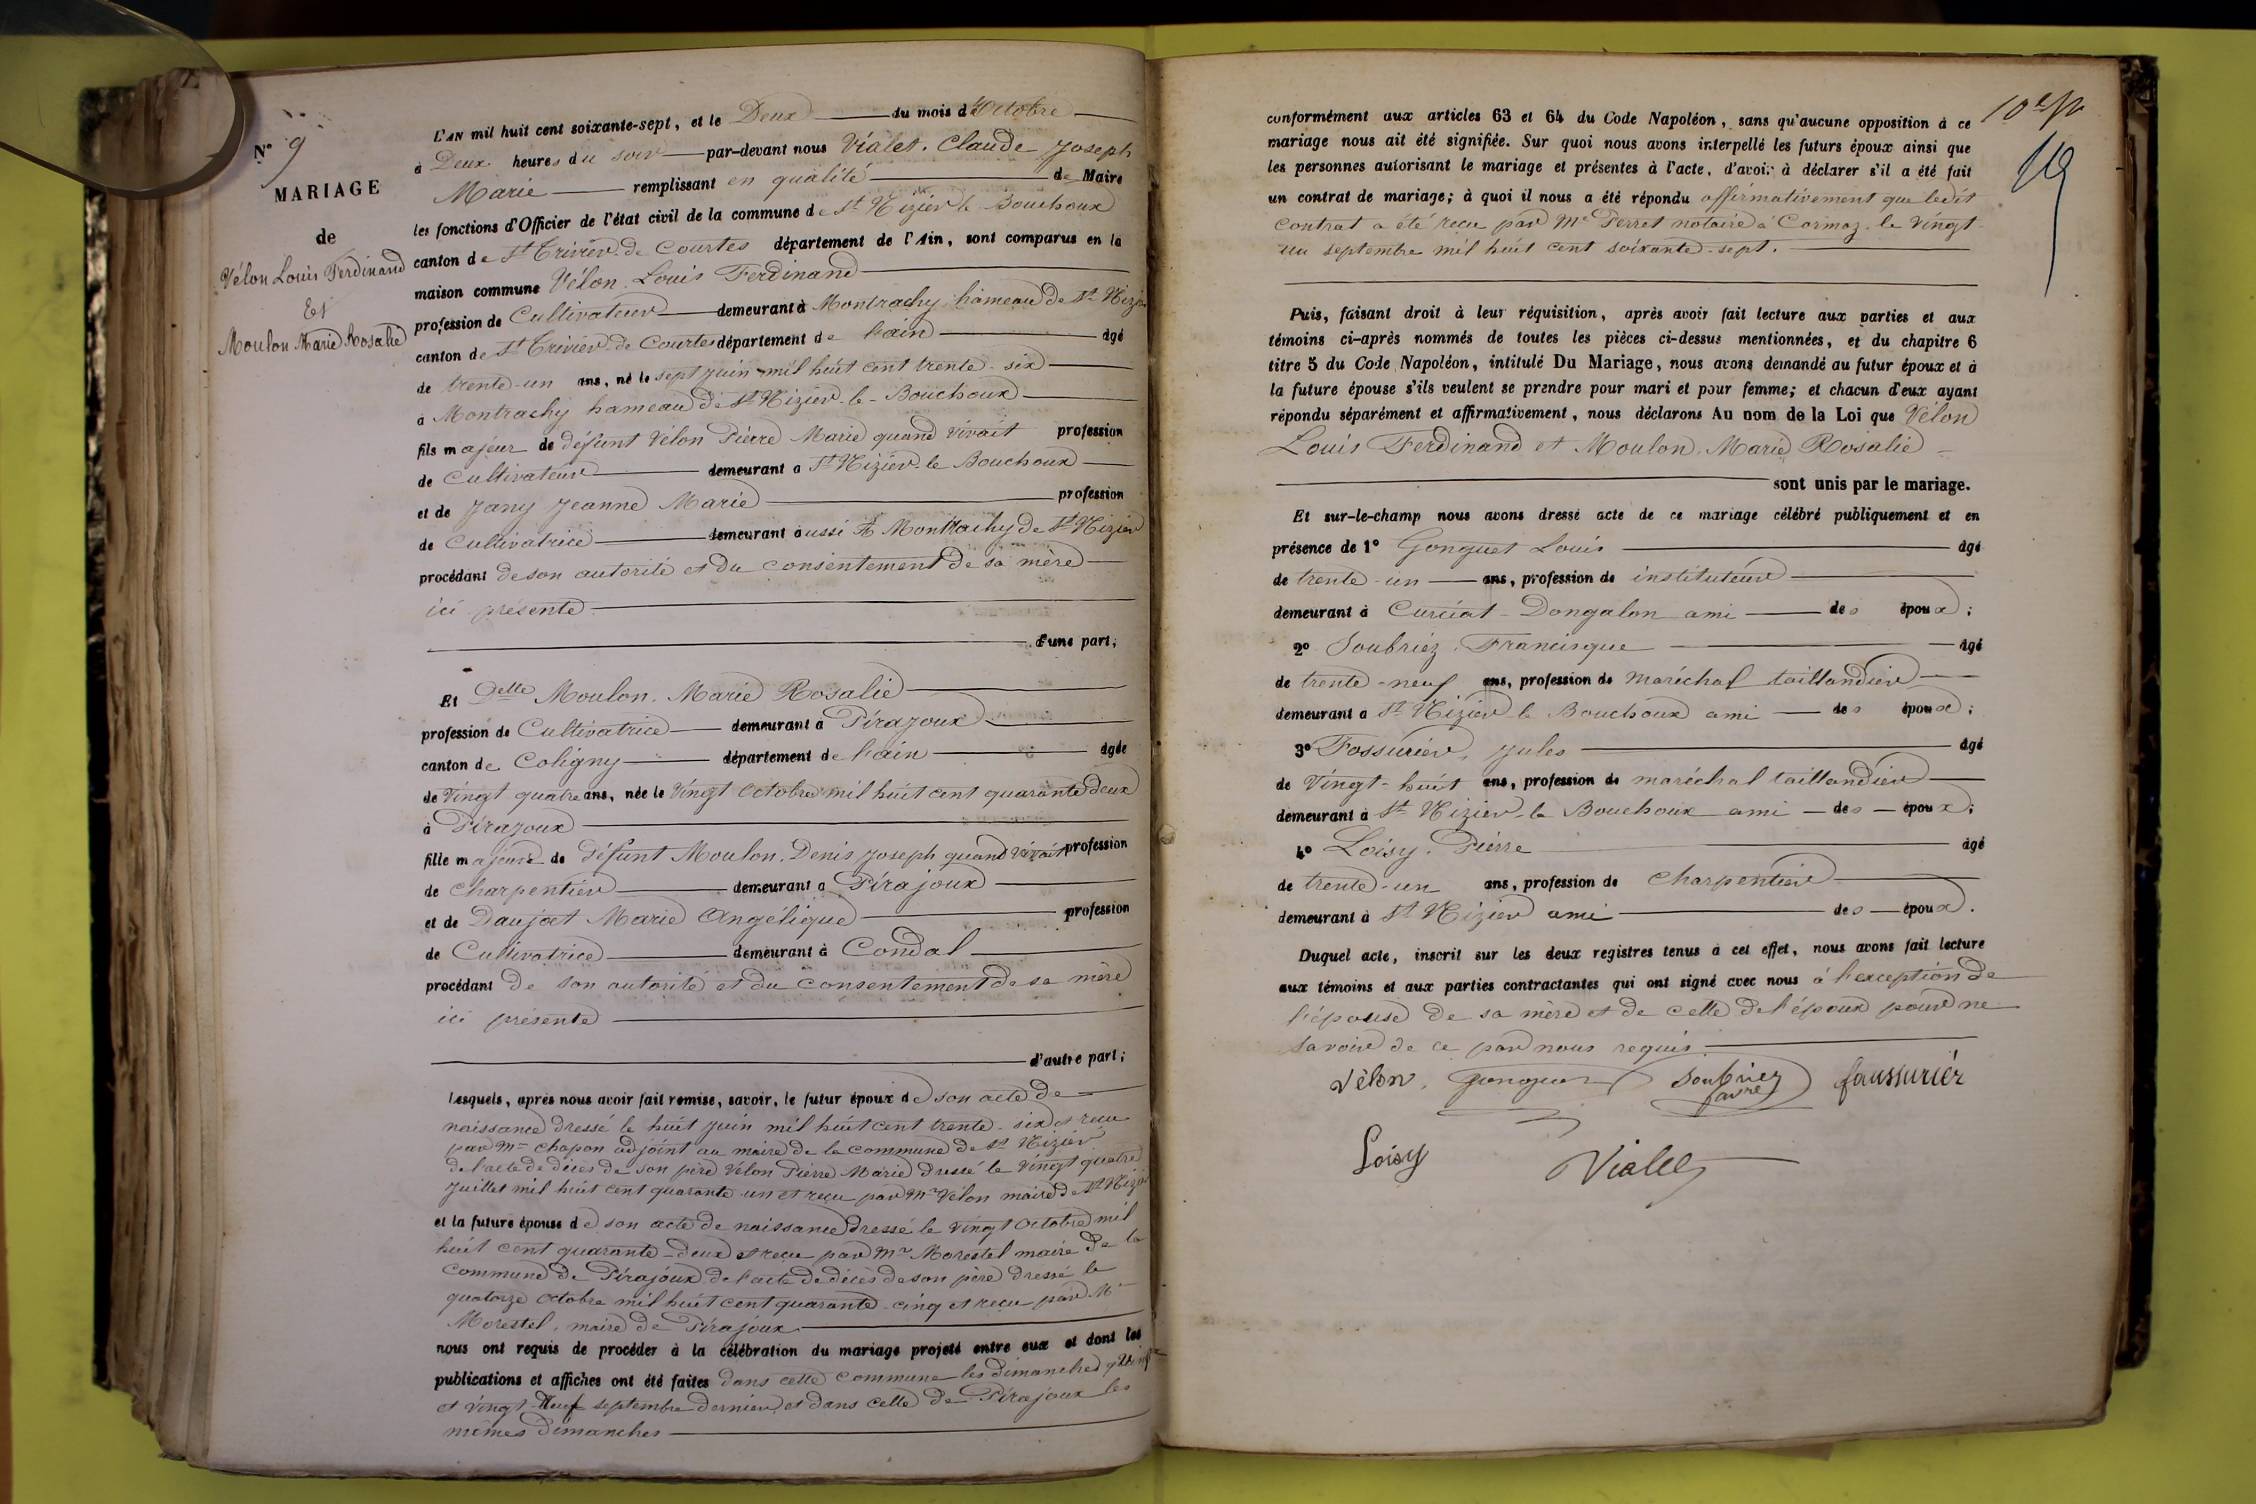 N° 9
MARIAGE
de
Vélon Louis Ferdinand
Et
Moulon Marie Rosalie
L'AN mil huit cent soixante-sept, et le Deux du mois d'Octobre
à Deux heures du soir par-devant nous Vialet. Claude Joseph
Marie remplissant en qualité de Maire
les fonctions d'Officier de l'état civil de la commune de St Nizier le Bouchoux
canton de St Trivier de Courtes département de l'Ain, sont comparus en la
maison commune Vélon. Louis Ferdinand
profession de Cultivateur demeurant à Montrachy hameau de St Nizier
canton de St Trivier de Courtes département de l'ain âgé
de trente-un ans, né le sept juin mil huit cent trente-six
à Montrachy hameau de St Nizier-le-Bouchoux
fils majeur de défunt Vélon Pierre Marie quand vivait profession
de Cultivateur demeurant à St Nizier-le Bouchoux
et de Jany Jeanne Marie profession
de Cultivatrice demeurant aussi à Montrachy de St Nizier
procédant de son autorité et du consentement de sa mère
ici présente
d'une part;
Et Delle Moulon. Marie Rosalie
profession de Cultivatrice demeurant à Pirajoux
canton de Coligny département de l'ain âgée
de Vingt quatre ans, née le Vingt Octobre mil huit cent quarante deux
à Pirajoux
fille majeure de défunt Moulon. Denis Joseph quand vivait profession
de charpentier demeurant à Pirajoux
et de Daujat Marie Angélique profession
de Cultivatrice demeurant à Condal
procédant de son autorité et du consentement de sa mère
ici présente
d'autre part;
Lesquels, après nous avoir fait remise, savoir, le futur époux de son acte de
naissance dressé le huit juin mil huit cent trente-six et reçu
par Mr Chapon adjoint au maire de la commune de St Nizier
de l'acte de décès de son père Vélon Pierre Marie dressé le vingt quatre
Juillet mil huit cent quarante un et reçu par Mr Vélon maire de St Nizier
et la future épouse de son acte de naissance dressé le vingt Octobre mil
huit cent quarante-deux et reçu par Mr Morestel maire de la
commune de Pirajoux de l'acte de décès de son père dressé le
quatorze Octobre mil huit cent quarante-cinq et reçu par Mr
Morestel, maire de Pirajoux
nous ont requis de procéder à la célébration du mariage projeté entre eux et dont les
publications et affiches ont été faites dans cette commune les dimanches quinze
et vingt-Neuf septembre dernier et dans celle de Pirajoux les
mêmes dimanches
conformément aux articles 63 et 64 du Code Napoléon, sans qu'aucune opposition à ce
mariage nous ait été signifiée. Sur quoi nous avons interpellé les futurs époux ainsi que
les personnes autorisant le mariage et présentes à l'acte, d'avoir à déclarer s'il a été fait
un contrat de mariage; à quoi il nous a été répondu affirmativement que ledit
contrat a été reçu par Me Perret notaire à Cormoz le vingt-
un septembre mil huit cent soixante-sept.
Puis, faisant droit à leur réquisition, après avoir fait lecture aux parties et aux
témoins ci-après nommés de toutes les pièces ci-dessus mentionnées, et du chapitre 6
titre 5 du Code Napoléon, intitulé Du Mariage, nous avons demandé au futur époux et à
la future épouse s'ils veulent se prendre pour mari et pour femme; et chacun d'eux ayant
répondu séparément et affirmativement, nous déclarons Au nom de la Loi que Vélon
Louis Ferdinand et Moulon. Marie Rosalie
sont unis par le mariage.
Et sur-le-champ nous avons dressé acte de ce mariage célébré publiquement et en
présence de 1° Gonguet Louis âgé
de trente-un ans, profession de instituteur
demeurant à Curciat-Dongalon ami des époux;
2° Soubriez. Francisque âgé
de trente-neuf ans, profession de maréchal taillandier
demeurant à St Nizier-le Bouchoux ami des époux;
3° Fossurier, Jules âgé
de Vingt-huit ans, profession de maréchal taillandier
demeurant à St Nizier-le Bouchoux ami des époux;
4° Loisy. Pierre âgé
de trente-un ans, profession de charpentier
demeurant à St Nizier ami des époux.
Duquel acte, inscrit sur les deux registres tenus à cet effet, nous avons fait lecture
aux témoins et aux parties contractantes qui ont signé avec nous à l'exception de
l'épouse de sa mère et de celle de l'époux pour ne
savoir de ce par nous requis.
Vélon. Gonguet Soubriez faussurier
favre
Loisy Vialet